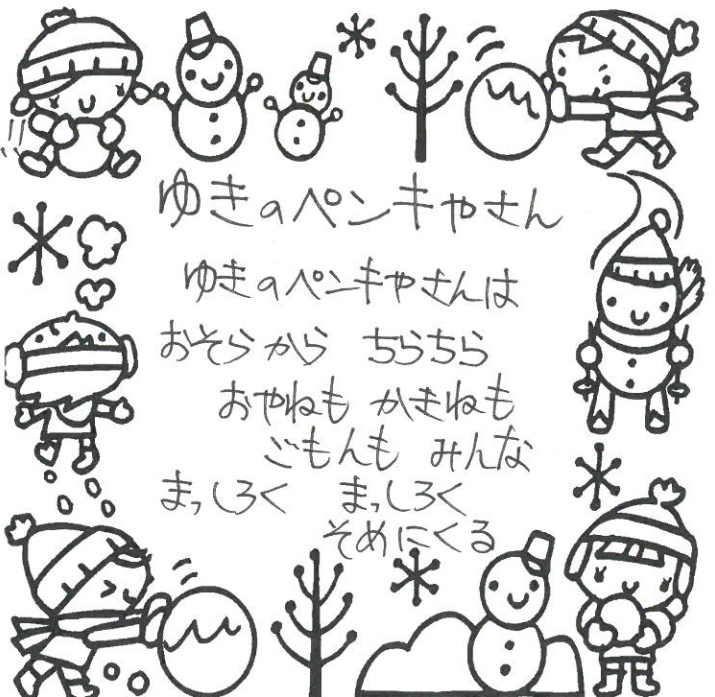 ゆきのペンキやさん
ゆきのペンキやさんは
おそらから ちらちら
おやねも かきねも
ごもんも みんな
まっしろく まっしろく
そめにくる